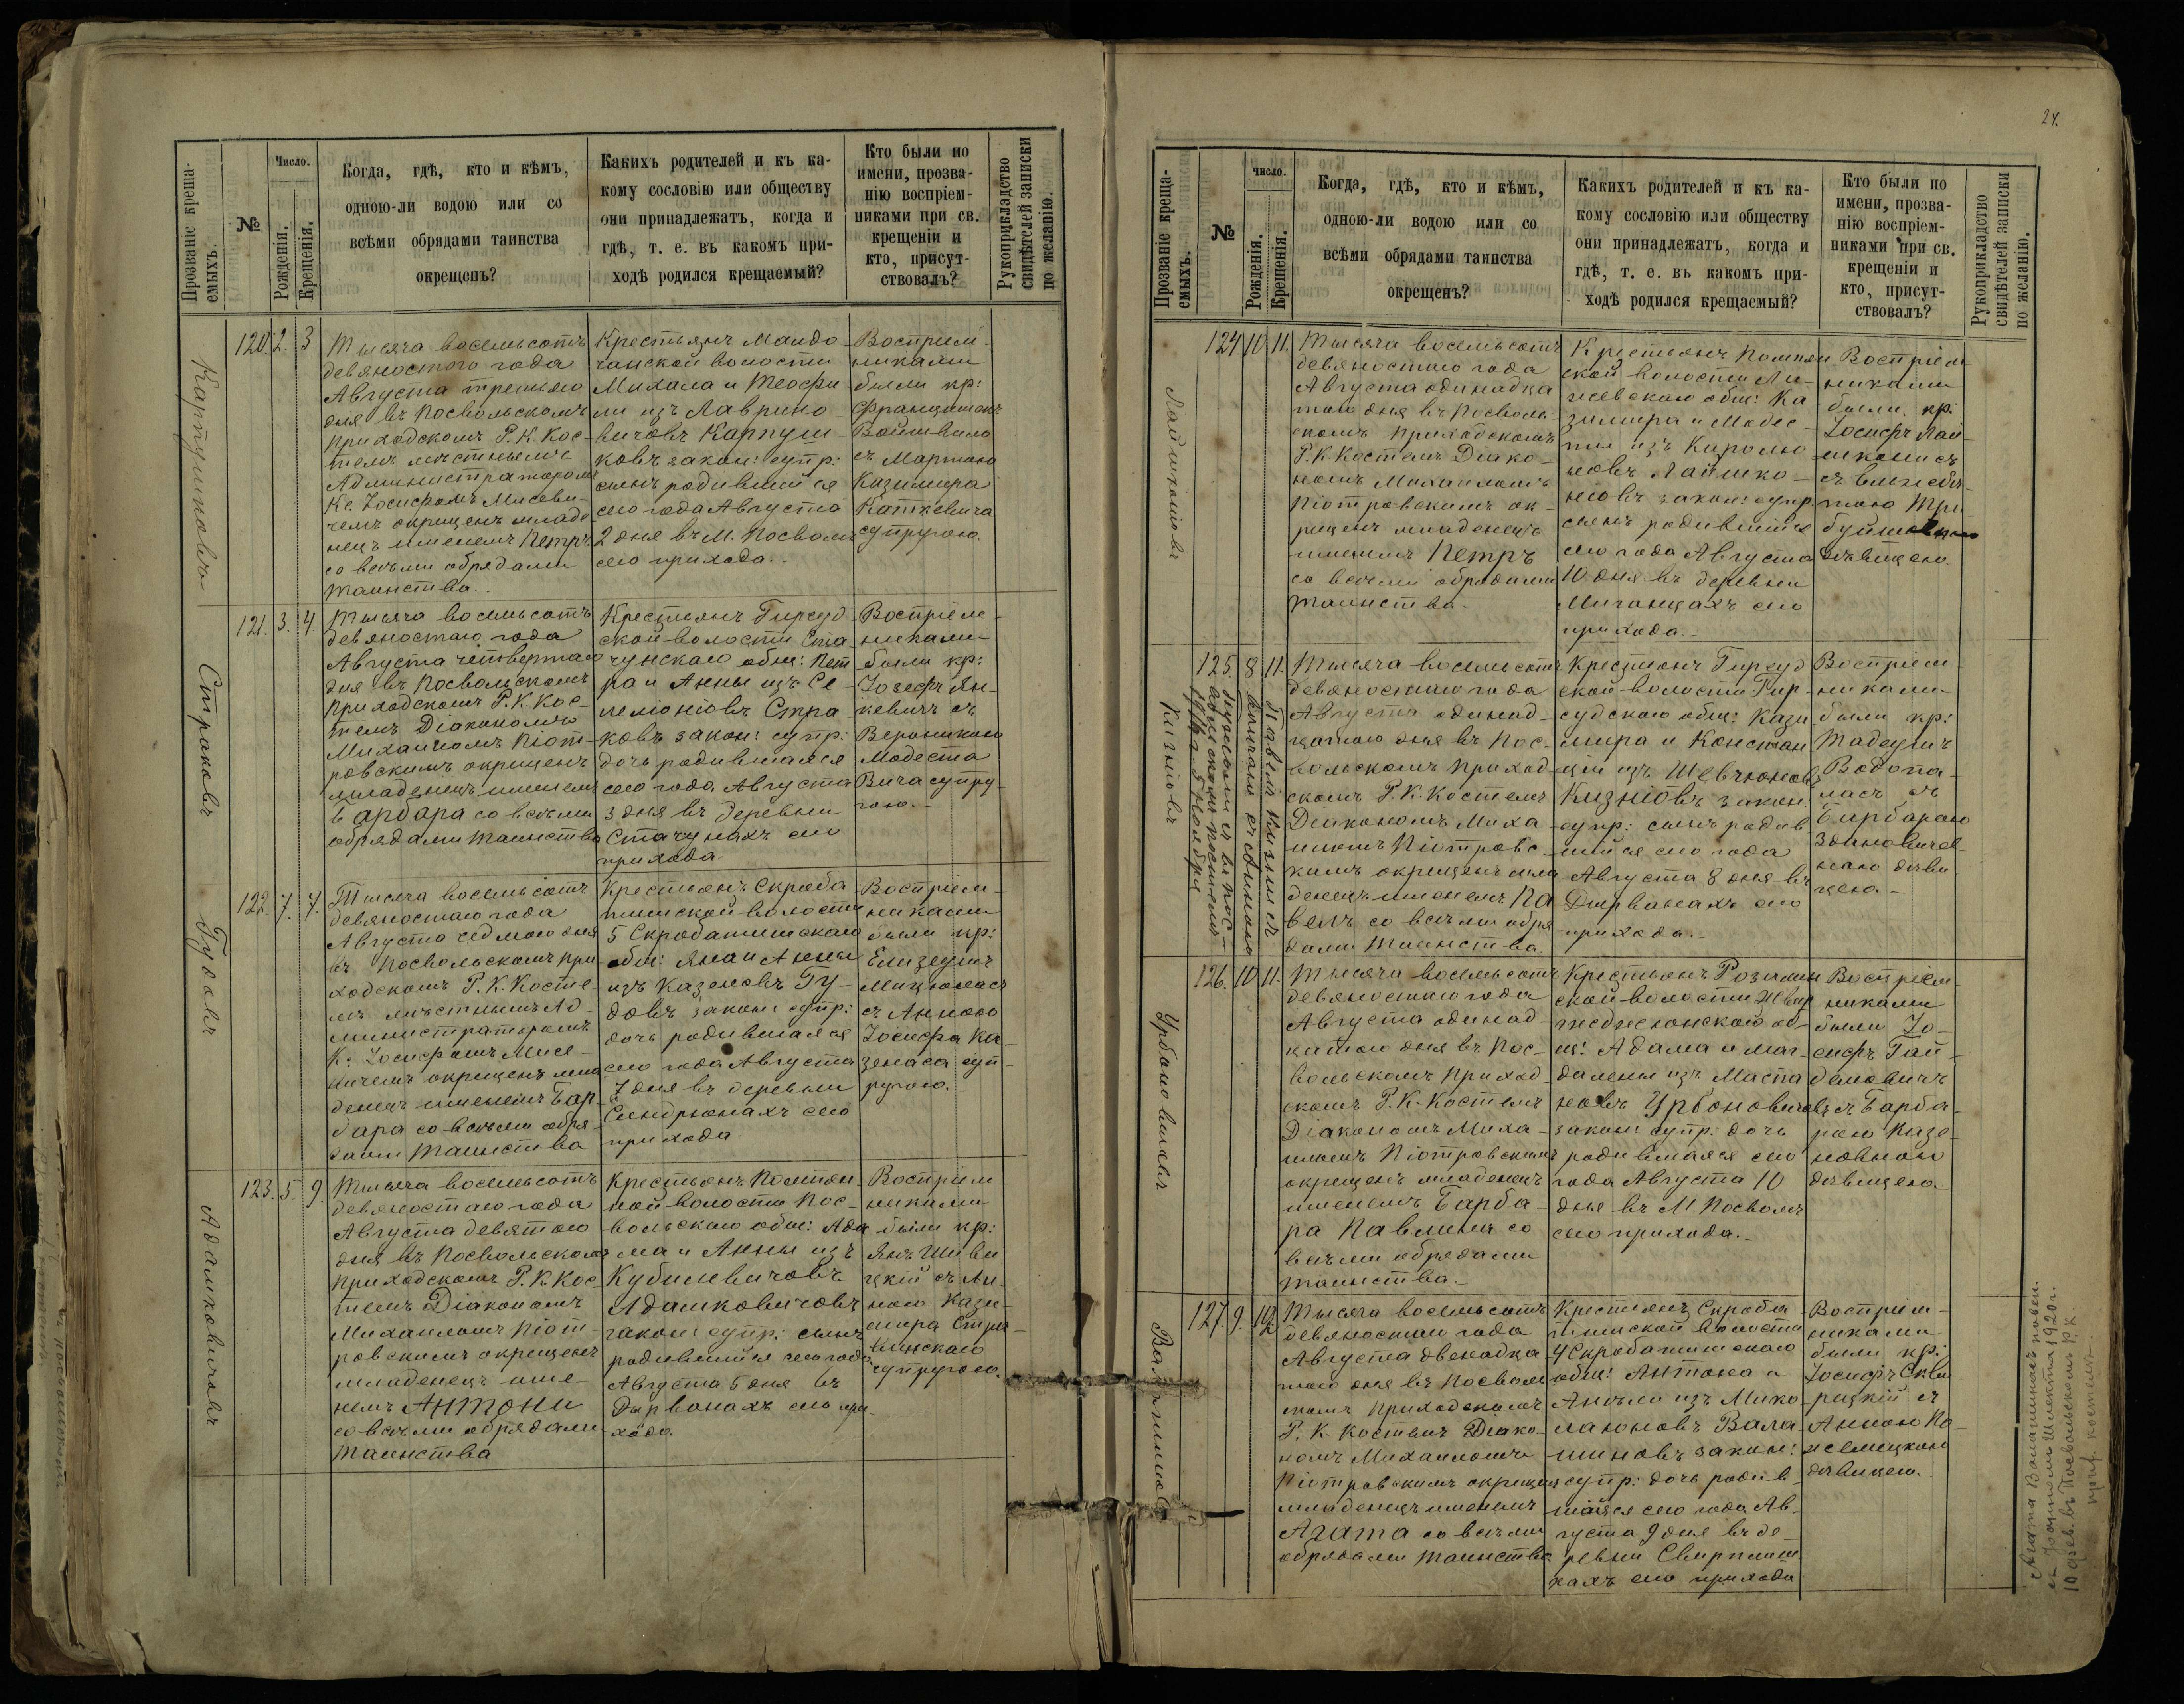 24.
Прозваніе креща-
емыхъ.
№
Число.
Рожденія.
Крещенія.
Когда, гдѣ, кто и кѣмъ,
одною-ли водою или со
всѣми обрядами таинства
окрещенъ?
Какихъ родителей и къ ка-
кому сословію или обществу
они принадлежатъ, когда и
гдѣ, т. е. въ какомъ при-
ходѣ родился крещаемый?
Кто были по
имени, прозва-
нію воспріем-
никами при св.
крещеніи и
кто, присут-
ствовалъ?
Рукоприкладство
свидѣтелей записки
по желанію.
Карпушковъ
120. 2. 3
Тысяча восемьсотъ
девяностого года
Августа третьяго
дня въ Посвольскомъ
приходскомъ Р. К. Кос-
телѣ мѣстнымъ
Администраторомъ
Кс. Іосифомъ Мисеви-
чемъ окрещенъ младе-
нецъ именемъ Петръ
со всѣми обрядами
таинства.
Крестьянъ
волости
Михаила и Теофи-
ли изъ Лаврино-
вичовъ Карпуш-
ковъ закон: супр:
сынъ родившійся
сего года Августа
2 дня въ М. Посволѣ
сего прихода.
Воспріем-
никами
были кр:
Францишекъ
съ Мартою
Казимира
Каткевича
супругою.
Страковъ
121. 3. 4.
Тысяча восемьсотъ
девяностаго года
Августа четвертаго
дня въ Посвольскомъ
приходскомъ Р. К. Кос-
телѣ Діакономъ
Михаиломъ Піот-
ровскимъ окрещенъ
младенецъ именемъ
Барбара со всѣми
обрядами таинства
Крестьянъ Гирсуд-
ской волости Ста-
чунскаго общ: Пет-
ра и Анны изъ Се-
Стра-
ковъ закон: супр:
дочь родившаяся
сего года Августа
3 дня въ деревни
Стачунахъ сего
прихода
Воспріем-
никами
были кр:
Іозефъ Ян-
кевичъ съ
Вероникою
Модеста
Вича супру-
гою.
Гудовъ
122. 7. 7.
Тысяча восемьсотъ
девяностаго года
Августа седмого дня
въ Посвольскомъ при-
ходскомъ Р. К. Косте-
лѣ мѣстнымъ Ад-
министраторомъ
К. Іосифомъ Мисе-
вичемъ окрещенъ мла-
денецъ именемъ Бар-
бара со всѣми обря-
дами таинства
Крестьянъ Скроба-
тишской волости
5 Скробатишскаго
общ: Яна и Анны
изъ Казеновъ Гу-
довъ закон: супр:
дочь родившаяся
сего года Августа
7 дня въ деревни
Синдрюнахъ сего
прихода.
Воспріем-
никами
были кр:
Елизеушъ
Мицюнасъ
съ Анною
Іосифа Ка-
зенаса суп-
ругою.
Адамковичовъ
123. 5. 9.
Тысяча восемьсотъ
девяностаго года
Августа девятого
дня въ Посвольскомъ
приходскомъ Р. К. Кос-
телѣ Діакономъ
Михаиломъ Піот-
ровскимъ окрещенъ
младенецъ име-
немъ Антони
со всѣми обрядами
таинства
Крестьянъ
волости Пос-
вольскаго общ: Ада-
ма и Анны изъ
Кубилевичовъ
Адамковичовъ
закон: супр: сынъ
родившійся сего года
Августа 5 дня въ
Дирванахъ сего при-
хода.
Воспріем-
никами
были кр:
Янъ
съ Ан-
ною Кази-
мира
супругою.
Прозваніе креща-
емыхъ.
№
Число.
Рожденія.
Крещенія.
Когда, гдѣ, кто и кѣмъ,
одною-ли водою или со
всѣми обрядами таинства
окрещенъ?
Какихъ родителей и къ ка-
кому сословію или обществу
они принадлежатъ, когда и
гдѣ, т. е. въ какомъ при-
ходѣ родился крещаемый?
Кто были по
имени, прозва-
нію воспріем-
никами при св.
крещеніи и
кто, присут-
ствовалъ?
Рукоприкладство
свидѣтелей записки
по желанію.
124. 10. 11.
Тысяча восемьсотъ
девяностаго года
Августа одинадца-
таго дня въ Посволь-
скомъ приходскомъ
Р. К. Костелѣ Діако-
номъ Михаиломъ
Піотровскимъ ок-
рещенъ младенецъ
именемъ Петръ
со всѣми обрядами
таинства.
Крестьянъ
ской волости
общ: Ка-
зимира и Модес-
ты изъ Каролю-
новъ
закон: супр:
сынъ родившійся
сего года Августа
10 дня въ деревни
Миганцахъ сего
прихода.
Воспріем-
никами
были кр:
Іосифъ
дѣвицею.
Кизнiовъ
125. 8. 11.
Павелъ Кизнисъ
съ Анною
въ Пос-
костелѣ
Тысяча восемьсотъ
девяностаго года
Августа одинад-
цатаго дня въ Пос-
вольскомъ приход-
скомъ Р. К. Костелѣ
Діакономъ Миха-
иломъ Піотровс-
кимъ окрещенъ мла-
денецъ именемъ Па-
велъ со всѣми обря-
дами таинства.
Крестьянъ Гирсуд-
ской волости Гир-
судскаго общ: Кази-
мира и Констан-
ціи изъ Шевчюновъ
Кизнiовъ закон:
супр: сынъ родив-
шійся сего года
Августа 8 дня въ
Дирванахъ сего
прихода.
Воспріем-
никами
были кр:
Тадеушъ
Водопа-
ласъ съ
Барбарою
Здановичев-
ною дѣви-
цею.
Урбоновичовъ
126. 10. 11.
Тысяча восемьсотъ
девяностаго года
Августа одинад-
цатаго дня въ Пос-
вольскомъ приход-
скомъ Р. К. Костелѣ
Діакономъ Миха-
иломъ Піотровскимъ
окрещенъ младенецъ
именемъ Барба-
ра Павлина со
всѣми обрядами
таинства.
Крестьянъ Розалим-
ской волости
об-
щ: Адама и Маг-
далены изъ Маста-
новъ Урбоновичовъ
закон: супр: дочь
родившаяся сего
года Августа 10
дня въ М. Посволѣ
сего прихода.
Воспріем-
никами
были Іо-
сифъ Гай-
делювичъ
съ Барба-
рою Казе-
новною
дѣвицею.
127. 9. 12
Тысяча восемьсотъ
девяностаго года
Августа двенадца-
таго дня въ Посволь-
скомъ приходскомъ
Р. К. Костелѣ Діако-
номъ Михаиломъ
Піотровскимъ окрещенъ
младенецъ именемъ
Агата со всѣми
обрядами таинства
Крестьянъ Скроба-
тишской волости
4 Скробатишскаго
общ: Антона и
Анели изъ Мико-
лаюновъ Вала-
шиновъ закон:
супр: дочь родив-
шаяся сего года Ав-
густа 9 дня въ де-
ревни
кахъ сего прихода
Воспріем-
никами
были кр:
Іосифъ
съ
Анною
дѣвицею.
Агата
1920 г.
въ Посвольскомъ Р. К.
костелѣ.